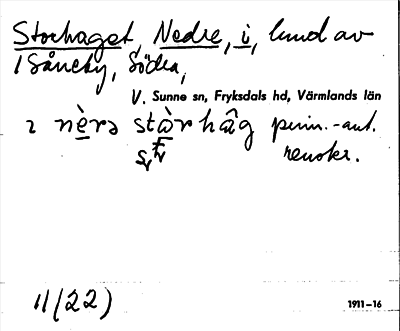 Storhaget, Nedre, i, lund av
1 Såneby, Södra,
V. Sunne sn, Fryksdals hd, Värmlands län
ı nèrə stàrhâg prim.-ant.
renskr.
11/(22)
1911–16